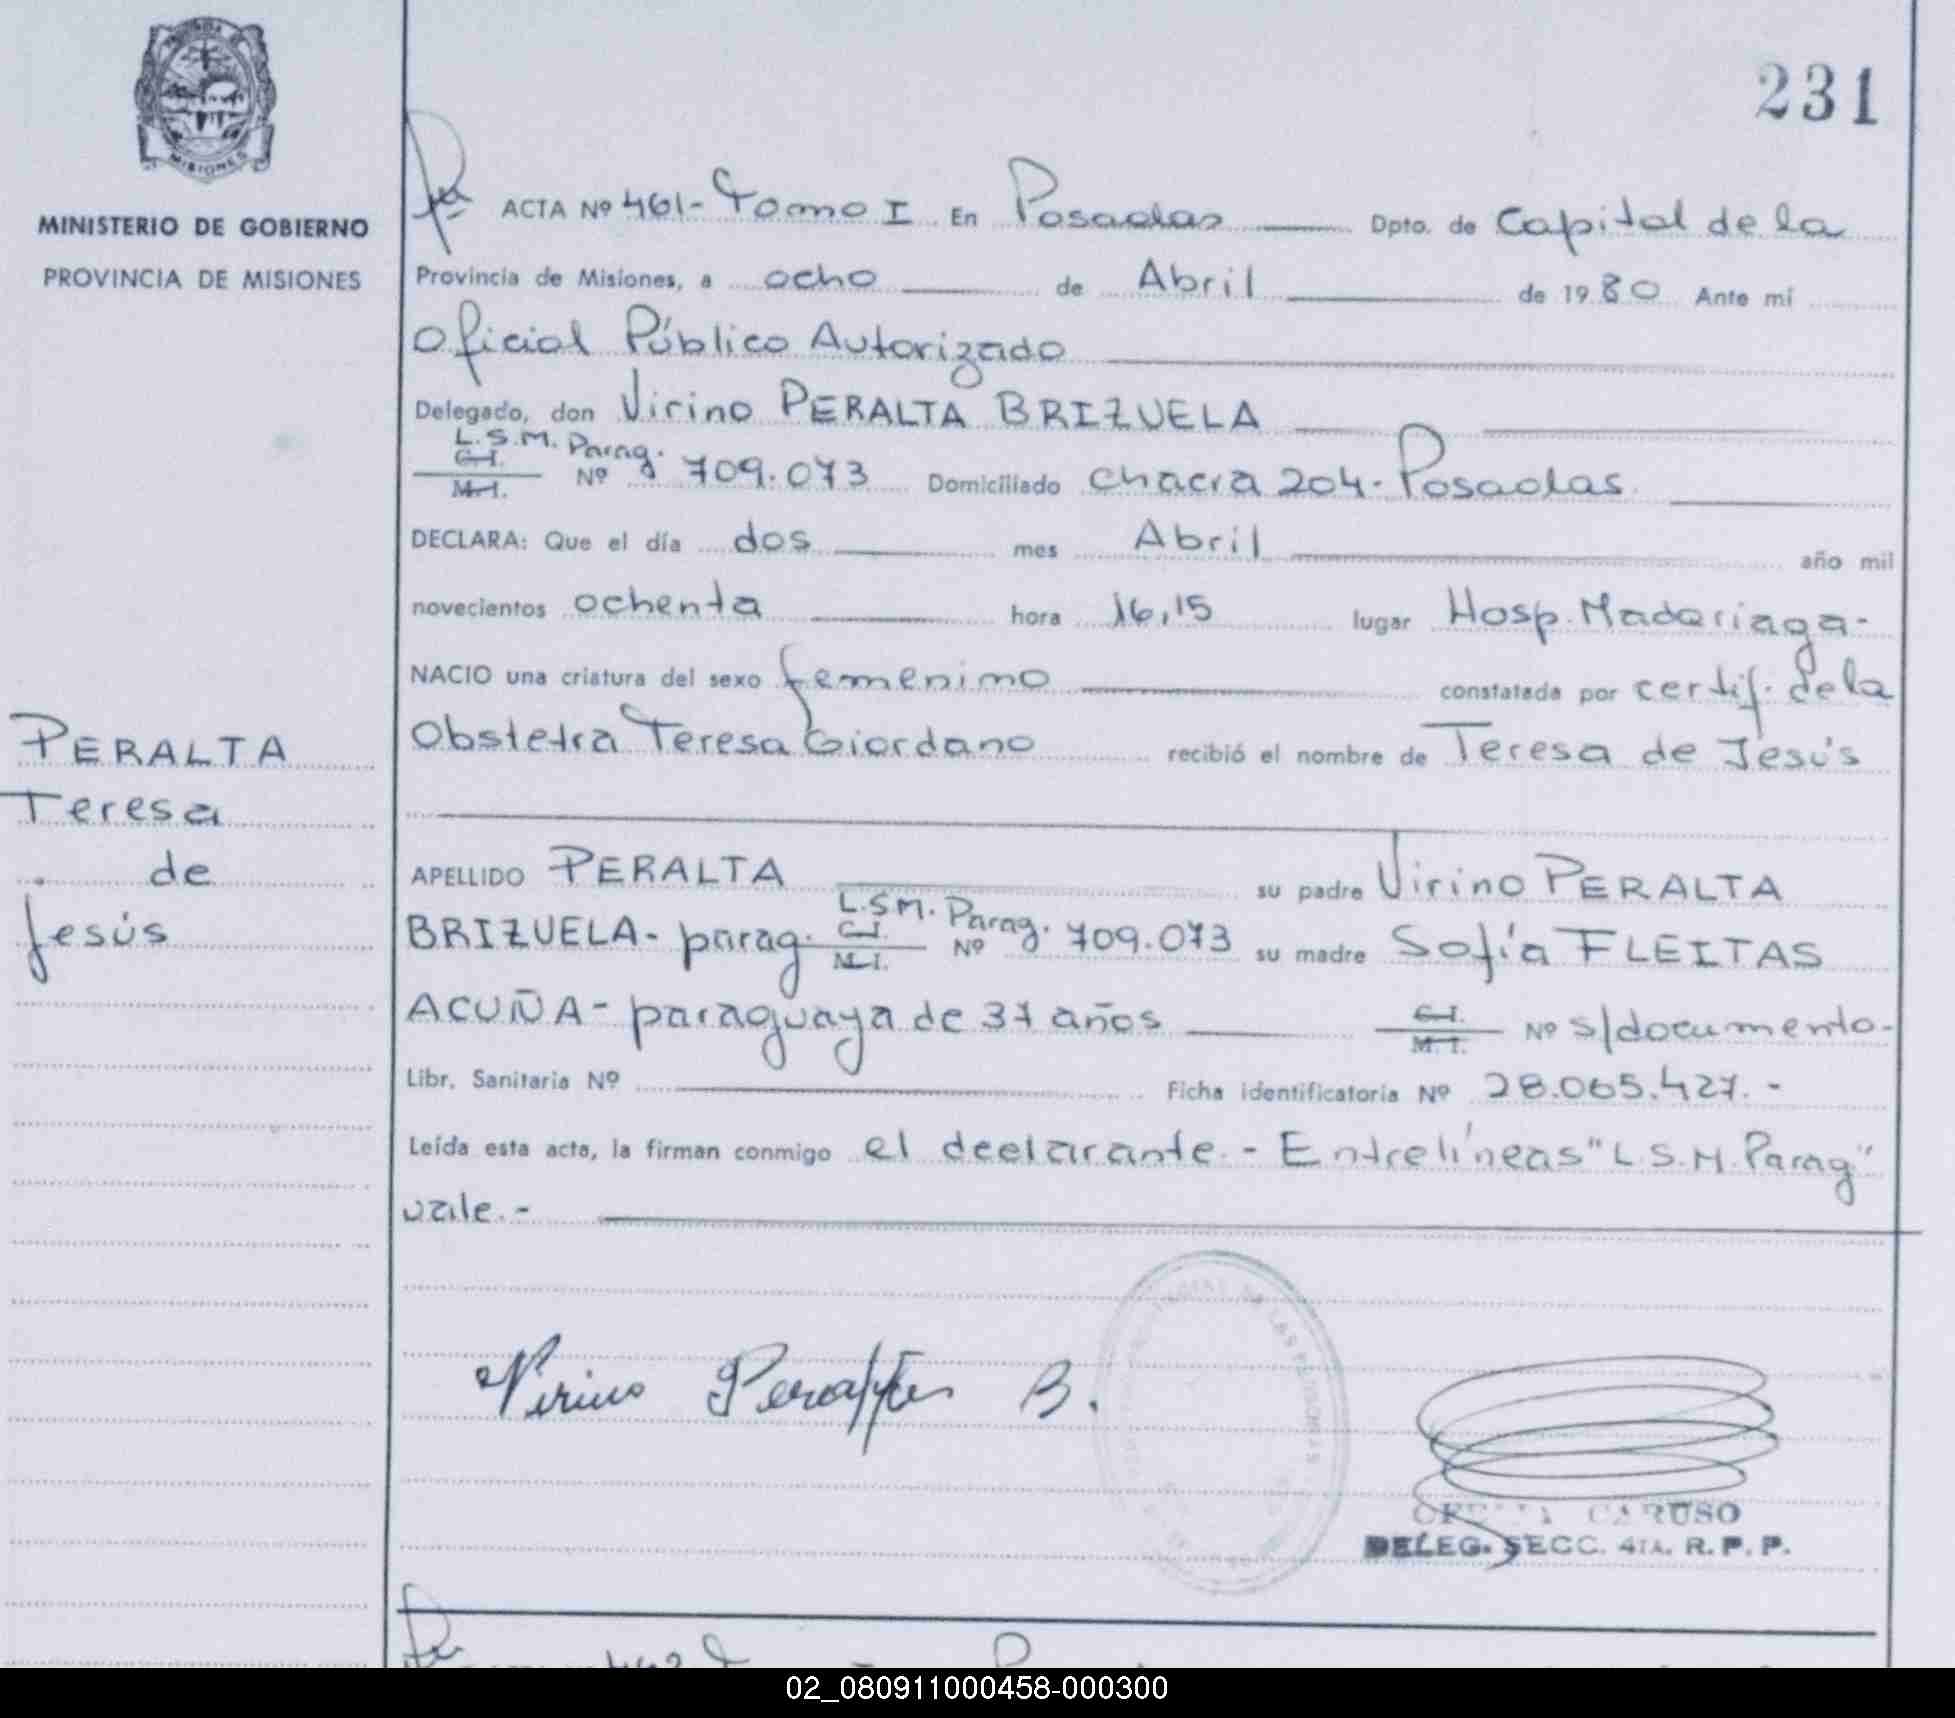 231
MISIONES
MINISTERIO DE GOBIERNO
PROVINCIA DE MISIONES
PERALTA
Teresa
de
Jesús
ACTA Nº 461- Tomo I En Posadas Dpto. de Capital de la
Provincia de Misiones, a ocho de Abril de 1980 Ante mí
Oficial Público Autorizado
Delegado, don Virino PERALTA BRIZUELA
L.S.M. Parag.
C.I.
M.I. Nº 709.073 Domiciliado chacra 204-Posadas
DECLARA: Que el día dos mes Abril año mil
novecientos ochenta hora 16,15 lugar Hosp. Madariaga-
NACIO una criatura del sexo femenino constatada por certif. de la
Obstetra Teresa Giordano recibió el nombre de Teresa de Jesús
APELLIDO PERALTA su padre Virino PERALTA
L.S.M. Parag.
BRIZUELA- parag. C.I. M.I. Nº 709.073 su madre Sofía FLEITAS
ACUÑA- paraguaya de 37 años C.I. M.I. Nº s/documento-
Libr. Sanitaria Nº Ficha identificatoria Nº 28.065.427.-
Leída esta acta, la firman conmigo el declarante.- Entrelíneas "L.S.M. Parag"
vale.-
Virino Peralta B.
CARUSO
DELEG. SECC. 4TA. R. P. P.
02_080911000458-000300